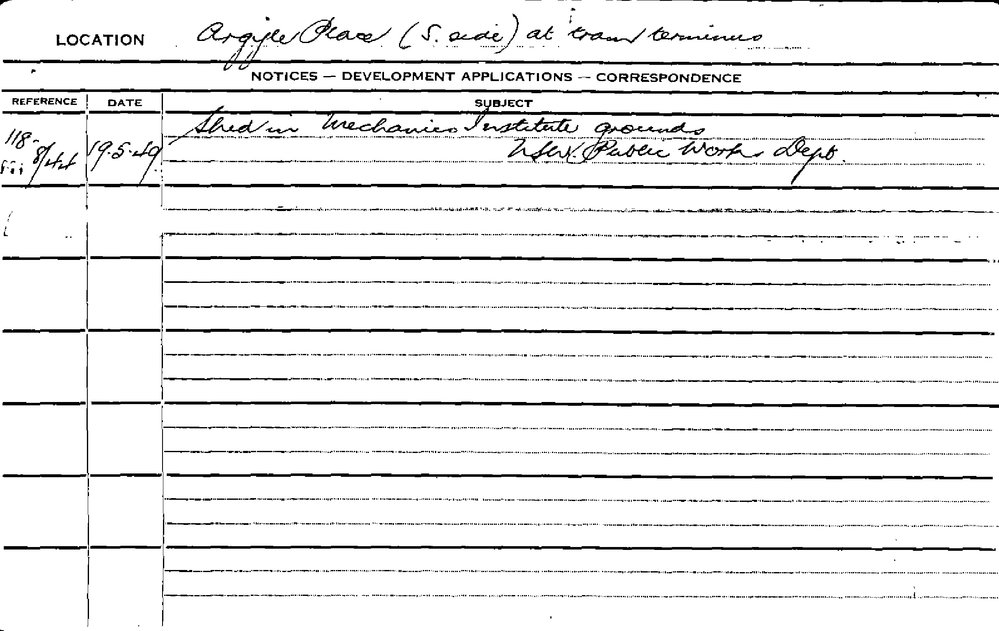 LOCATION Argyle Place (S. side) at tram terminus
NOTICES — DEVELOPMENT APPLICATIONS — CORRESPONDENCE
REFERENCE DATE SUBJECT
Shed in Mechanics Institute grounds
118- 8/44 19.5.49 NSW. Public Works Dept.